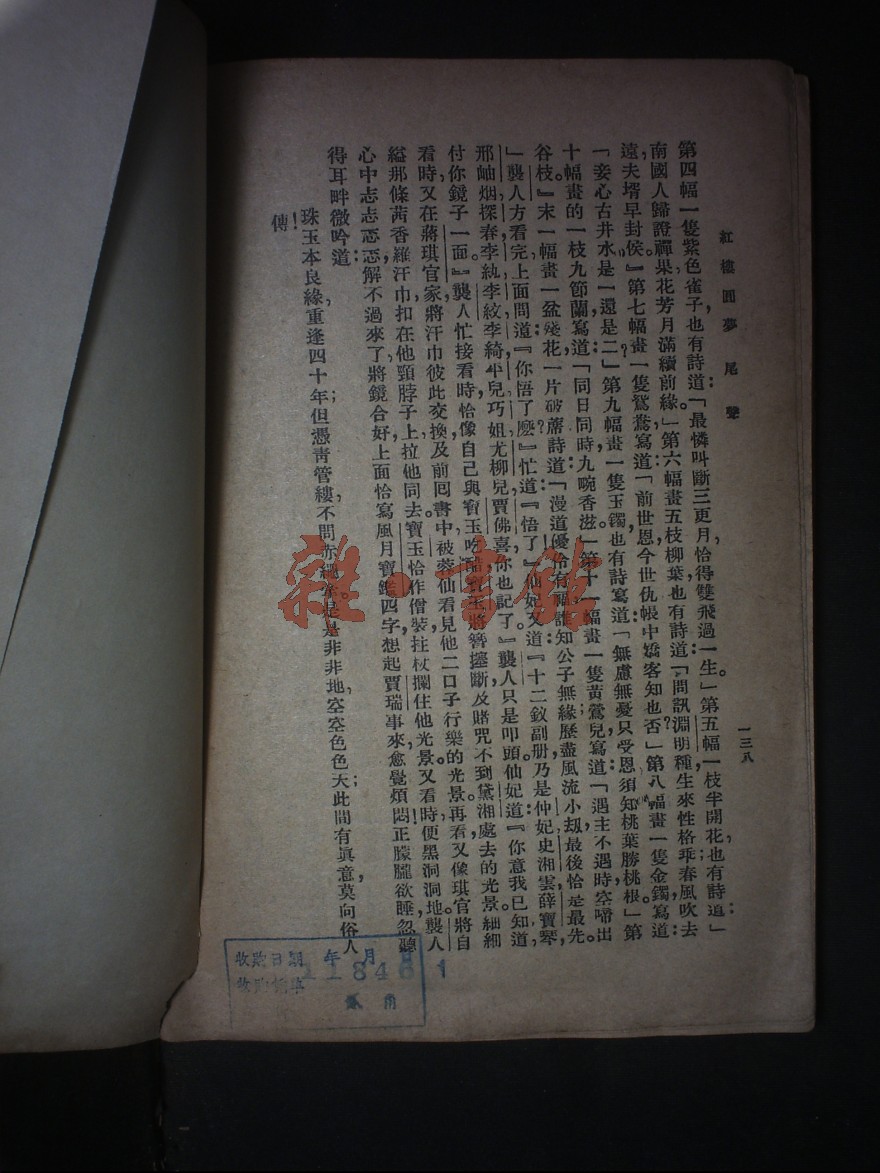 紅樓圓夢 尾聲
一三八
第四幅一隻紫色雀子,也有詩道:「最憐叫斷三更月,恰得雙飛過一生。」第五幅一枝半開花,也有詩道:「
南國人歸證禪果,花芳月滿續前緣。」第六幅畫五枝柳葉,也有詩道:「問訊淵明種生來性格乖?春風吹去
遠,夫壻早封侯。』第七幅畫一隻鴛鴦,寫道:「前世恩今世仇,帳中嬌客知也否?」第八幅畫一隻金鐲,寫道:
「妾心古井水,是一還是二?」第九幅畫一隻玉鐲,也有詩寫道:「無慮無憂只受恩,須知桃葉勝桃根。」第
十幅畫的一枝九節蘭,寫道:「同日同時九畹香滋。」第十一幅畫一隻黃鶯兒,寫道:「遇主不遇時,空囀出
谷枝。』末一幅畫一盆殘花,一片破蓆,詩道:「漫道優伶有福,誰知公子無緣?歷盡風流小刼,最後恰是最先。
」襲人方看完,上面問道:『你悟了麽?』忙道:『悟了。』仙妃又道:『十二釵副册乃是仲妃史湘雲薛寶琴,
邢岫烟探春李紈李紋李綺平兒巧姐尤柳兒賈佛喜,你也記了。』襲人只是叩頭。仙妃道:『你意我已知道,
付你鏡子一面。』襲人忙接看時,恰像自己與寶玉吃醋,寶玉將簪擪斷,及賭咒不到黛湘處去的光景。細細
看時,又在蔣琪官家將汗巾彼此交換,及前囘書中被蓉仙看見他二口子行樂的光景。再看又像琪官將自
縊那條茜香羅汗巾扣在他頸脖子上,拉他同去,寶玉恰作僧裝拄杖攔住他光景。又看時,便黑洞洞地。襲人
心中志志忑忑,解不過來了,將鏡合好,上面恰寫風月寶鑑四字,想起賈瑞事來,愈覺煩悶!正朦朧欲睡,忽聽
得耳畔微吟道:
珠玉本良緣,重逢四十年;但憑靑管縷,不問赤繩牽。是是非非地,空空色色天;此間有眞意,莫向俗人
傳!
雜·書館
收歀日期 年 月 日